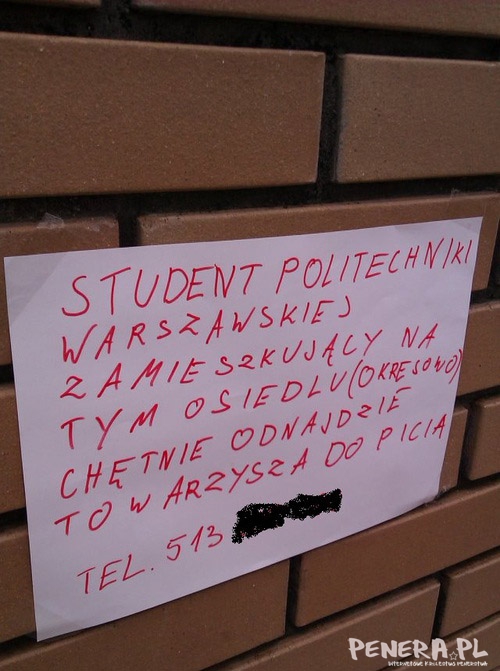 STUDENT POLITECHNIKI
WARSZAWSKIEJ
ZAMIESZKUJĄCY NA
TYM OSIEDLU (OKRĘSOWO)
CHĘTNIE ODNAJDZIE
TOWARZYSZA DO PICIA
TEL. 513
PENERA.PL
INTERNETOWE KRÓLESTWO PENERSTWA